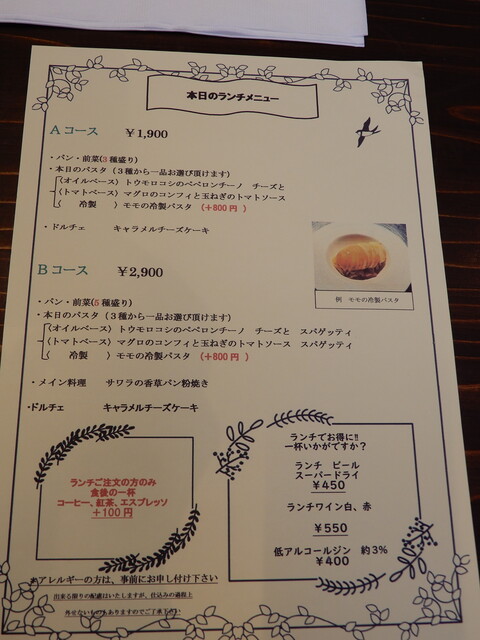 本日のランチメニュー
Aコース ￥1,900
・パン・前菜(3種盛り)
・本日のパスタ（３種から一品お選び頂けます）
〈オイルベース〉トウモロコシのペペロンチーノ チーズと
〈トマトベース〉マグロのコンフィと玉ねぎのトマトソース
〈 冷製 〉モモの冷製パスタ （+800円 ）
・ドルチェ キャラメルチーズケーキ
例 モモの冷製パスタ
Bコース ￥2,900
・パン・前菜(5種盛り)
・本日のパスタ（３種から一品お選び頂けます）
〈オイルベース〉トウモロコシのペペロンチーノ チーズと スパゲッティ
〈トマトベース〉マグロのコンフィと玉ねぎのトマトソース スパゲッティ
〈 冷製 〉モモの冷製パスタ （+800円 ）
・メイン料理 サワラの香草パン粉焼き
・ドルチェ キャラメルチーズケーキ
ランチご注文の方のみ
食後の一杯
コーヒー、紅茶、エスプレッソ
＋100円
ランチでお得に!!
一杯いかがですか？
ランチ ビール
スーパードライ
￥450
ランチワイン白、赤
￥550
低アルコールジン 約3%
￥400
※アレルギーの方は、事前にお申し付け下さい
出来る限りの配慮はいたしますが、仕込みの過程上
外せないものもありますのでご了承下さい